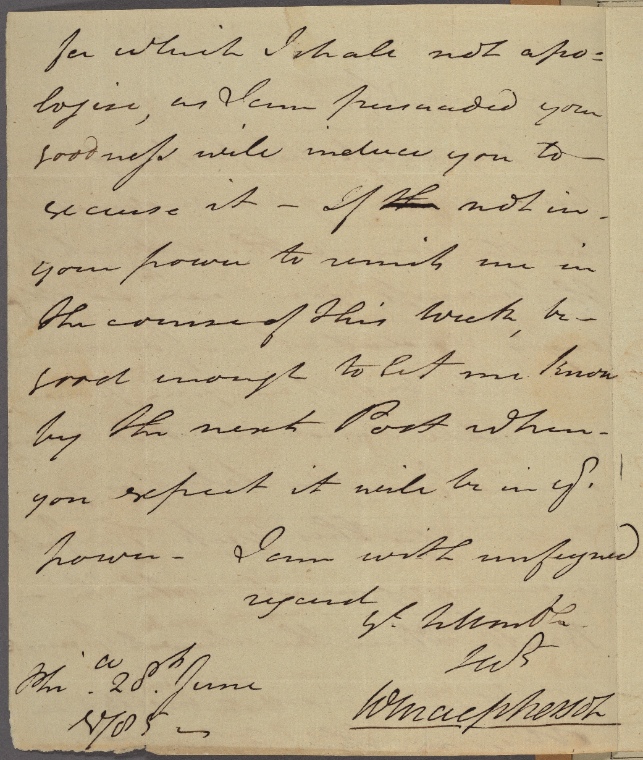 for which I shall not apo=
logise, as I am persuaded your
goodness will induce you to
excuse it - If the not in
your power to remit me in
the course of this Week, be
good enough to let me know
by the next Post when
you expect it will be in yr.
power - I am with unfeigned
regard
Yr. Humble
Servt
Phia. 28th. June
1785
WMacpherson